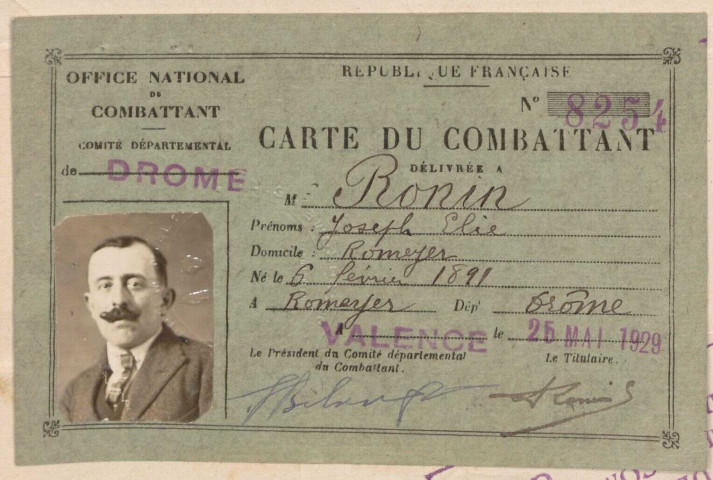 OFFICE NATIONAL
DU
COMBATTANT
COMITÉ DÉPARTEMENTAL
de DROME
RÉPUBLIQUE FRANÇAISE
N° 8254
CARTE DU COMBATTANT
DÉLIVRÉE A
M Ronin
Prénoms : Joseph Elie
Domicile : Romeyer
Né le 6 février 1891
A Romeyer Dép^t Drôme
A VALENCE le 25 MAI 1929
Le Président du Comité départemental
du Combattant.
Le Titulaire.
Ronin